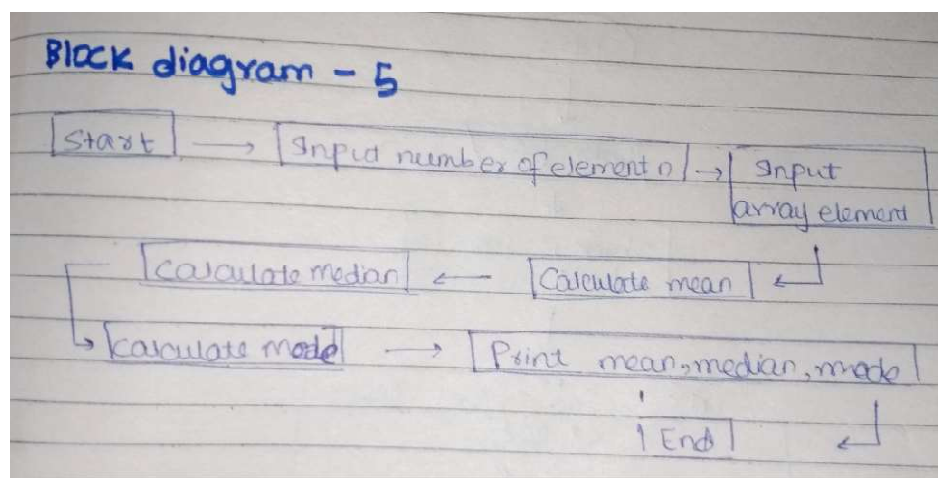 Block diagram - 5
Start → Input number of element n → Input
array element
Calculate median ← Calculate mean
Calculate mode → Print mean, median, mode
End